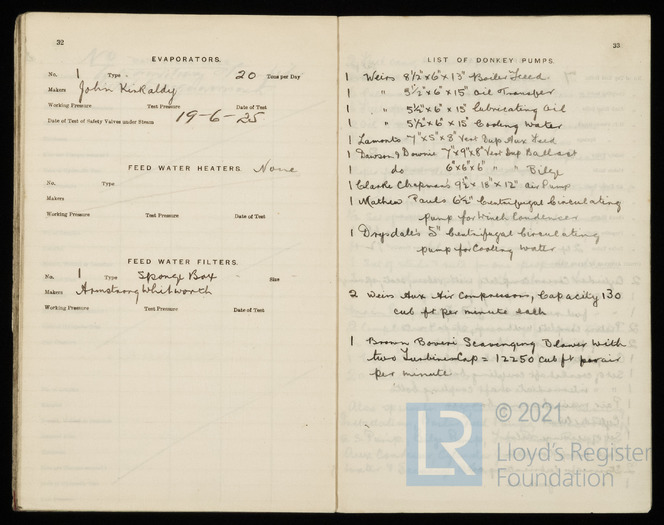 32
EVAPORATORS.
No. 1 Type 20 Tons per Day
Makers John Kirkaldy
Working Pressure Test Pressure Date of Test
Date of Test of Safety Valves under Steam 19-6-25
FEED WATER HEATERS. None
No. Type
Makers
Working Pressure Test Pressure Date of Test
FEED WATER FILTERS.
No. 1 Type Sponge Box Size
Makers Armstrong Whitworth
Working Pressure Test Pressure Date of Test
33
LIST OF DONKEY PUMPS.
1 Weirs 8½" x 6" x 13" Boiler Feed
1 " 5½" x 6" x 15" Oil Transfer
1 " 5¼" x 6" x 15" Lubricating Oil
1 " 5½" x 6" x 15" Cooling Water
1 Lamonts 7" x 5" x 8" Vert Dup Aux Feed
1 Dawson & Downie 7" x 9" x 8" Vert Dup Ballast
1 do 6" x 6" x 6" " " Bilge
1 Clarke Chapman's 9½" x 18" x 12" Air Pump
1 Mathew Pauls 6½" Centrifugal Circulating
pump for Winch Condenser
1 Drysdale's 5" Centrifugal Circulating
pump for Cooling Water
2 Weirs Aux Air Compressors, Capacity 130
cub ft per minute each
1 Brown Boveri Scavenging Blower with
two Turbines Cap = 12250 cub ft air
per minute
© 2021
LR Lloyd's Register
Foundation